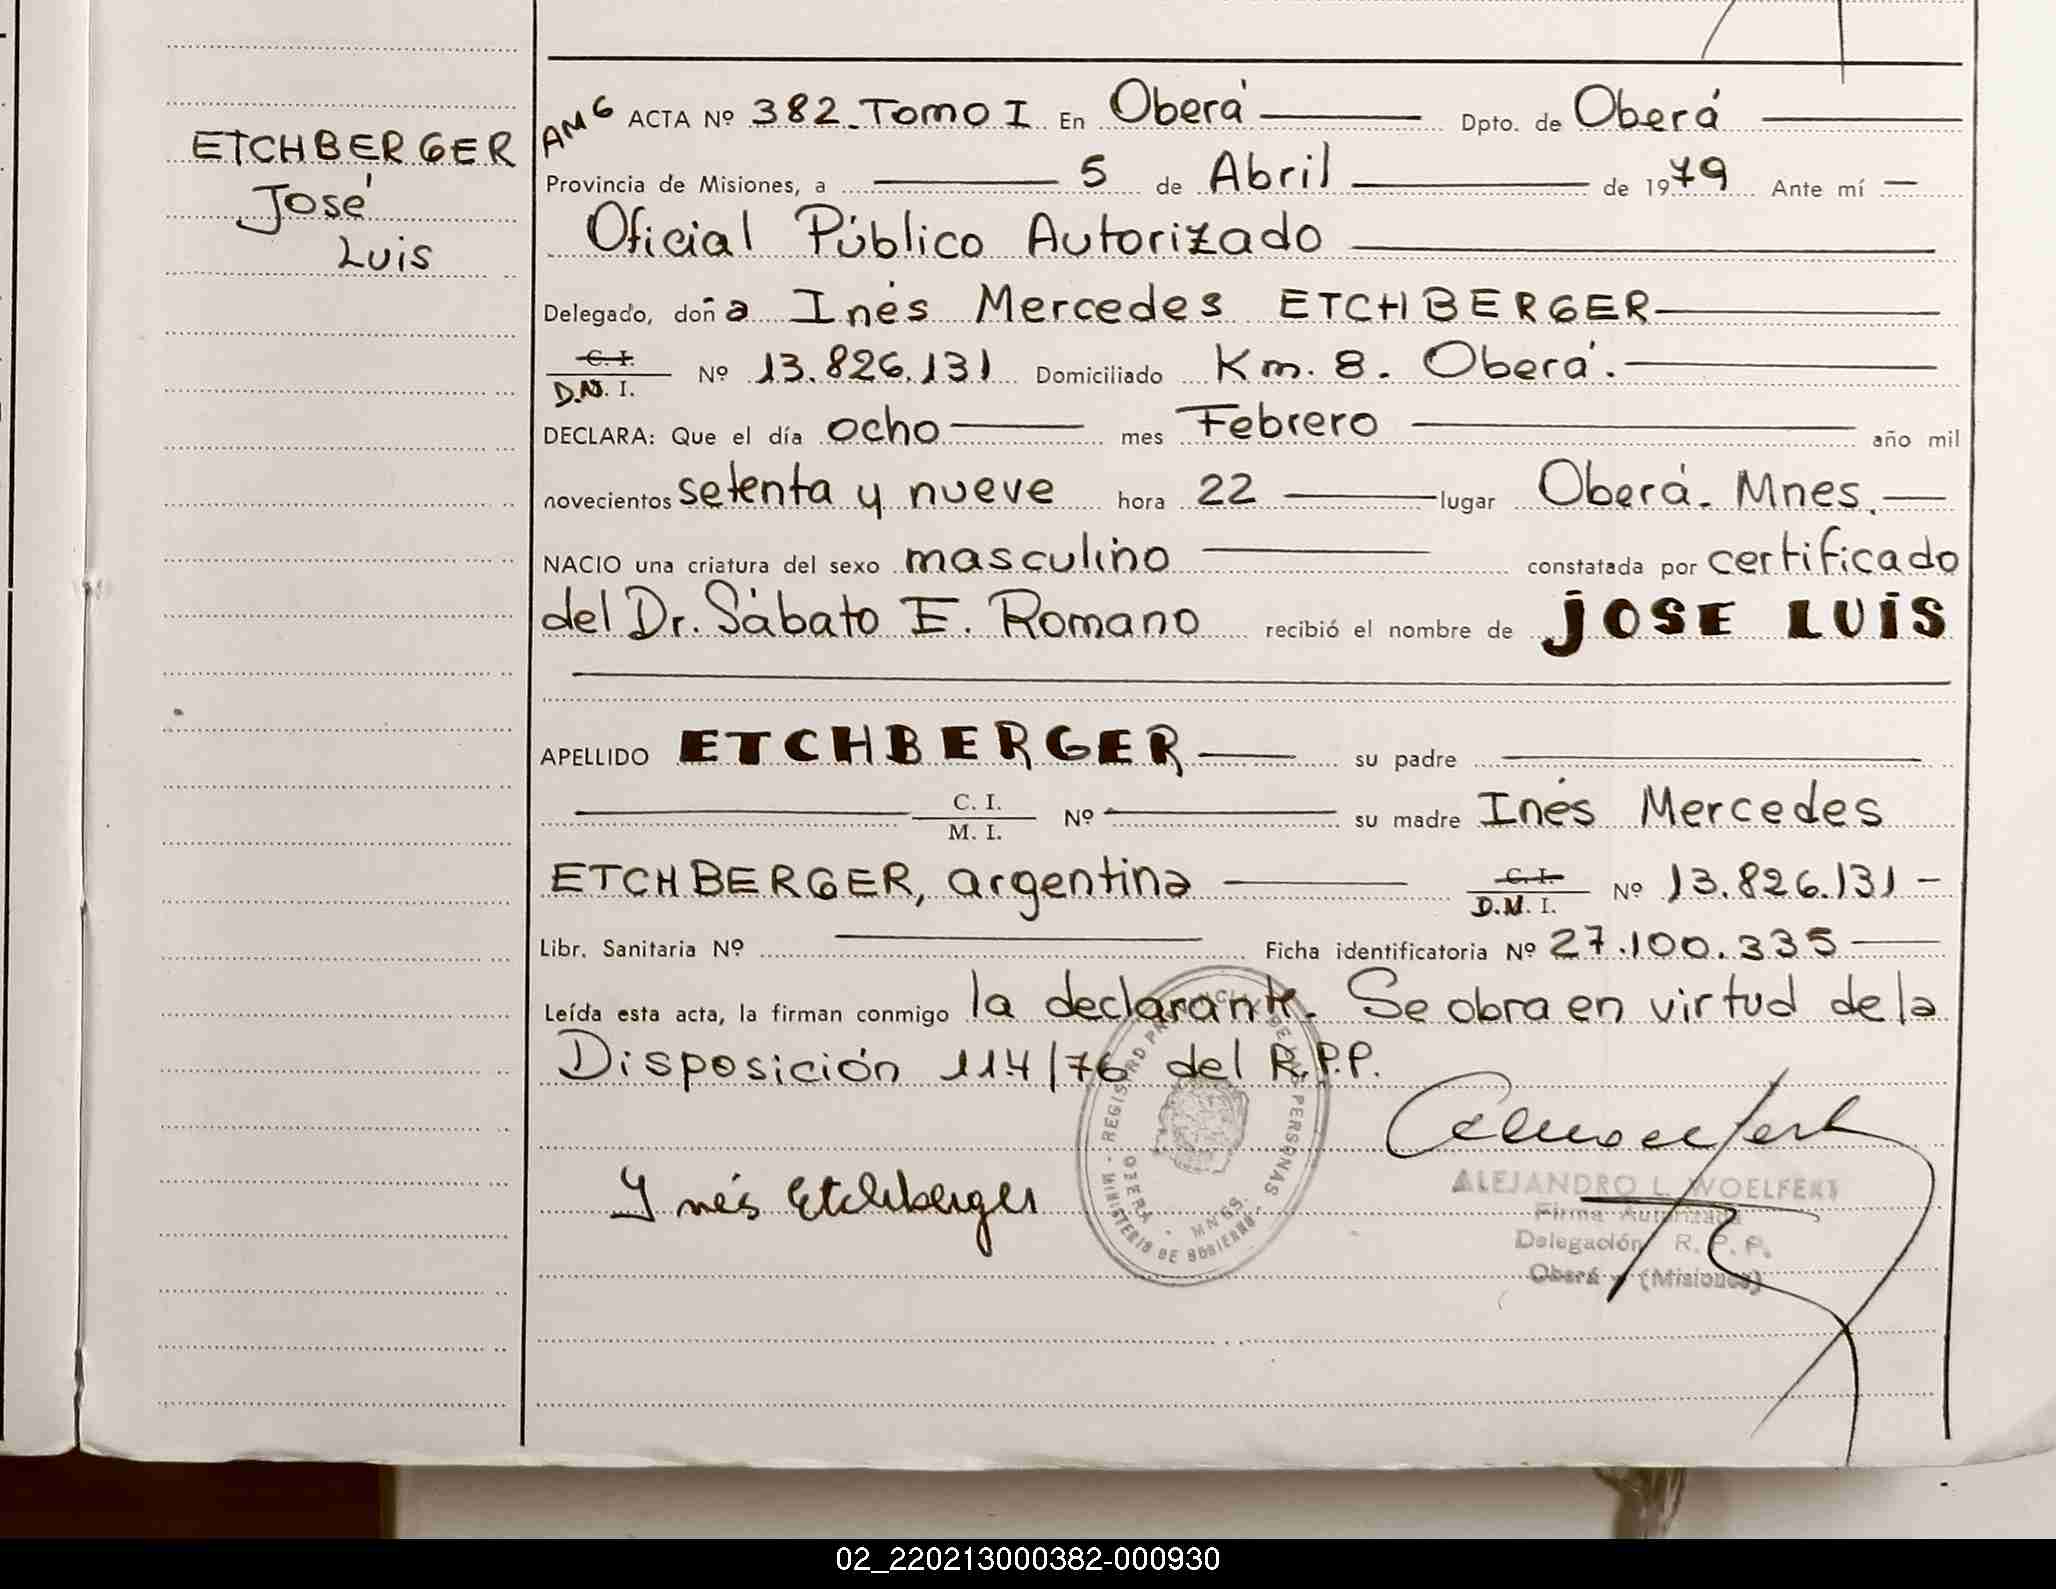 ETCHBERGER
José
Luis
AMG ACTA Nº 382 - Tomo I En Oberá Dpto. de Oberá
Provincia de Misiones, a 5 de Abril de 1979 Ante mí
Oficial Público Autorizado
Delegado, doña Inés Mercedes ETCHBERGER
C. I.
D.N. I. Nº 13.826.131 Domiciliado Km. 8. Oberá.
DECLARA: Que el día ocho mes Febrero año mil
novecientos setenta y nueve hora 22 lugar Oberá - Mnes.
NACIO una criatura del sexo masculino constatada por certificado
del Dr. Sábato E. Romano recibió el nombre de JOSE LUIS
APELLIDO ETCHBERGER su padre
C. I.
M. I. Nº su madre Inés Mercedes
ETCHBERGER, argentina C. I.
D.M. I. Nº 13.826.131 -
Libr. Sanitaria Nº Ficha identificatoria Nº 27.100.335
Leída esta acta, la firman conmigo la declarante. Se obra en virtud de la
Disposición 114/76 del R.P.P.
Inés Etchberger
REGISTRO PROVINCIAL DE LAS PERSONAS
OBERA - MNES.
MINISTERIO DE GOBIERNO
ALEJANDRO L. WOELFERT
Firma Autorizada
Delegación R. P. P.
Oberá - (Misiones)
02_220213000382-000930